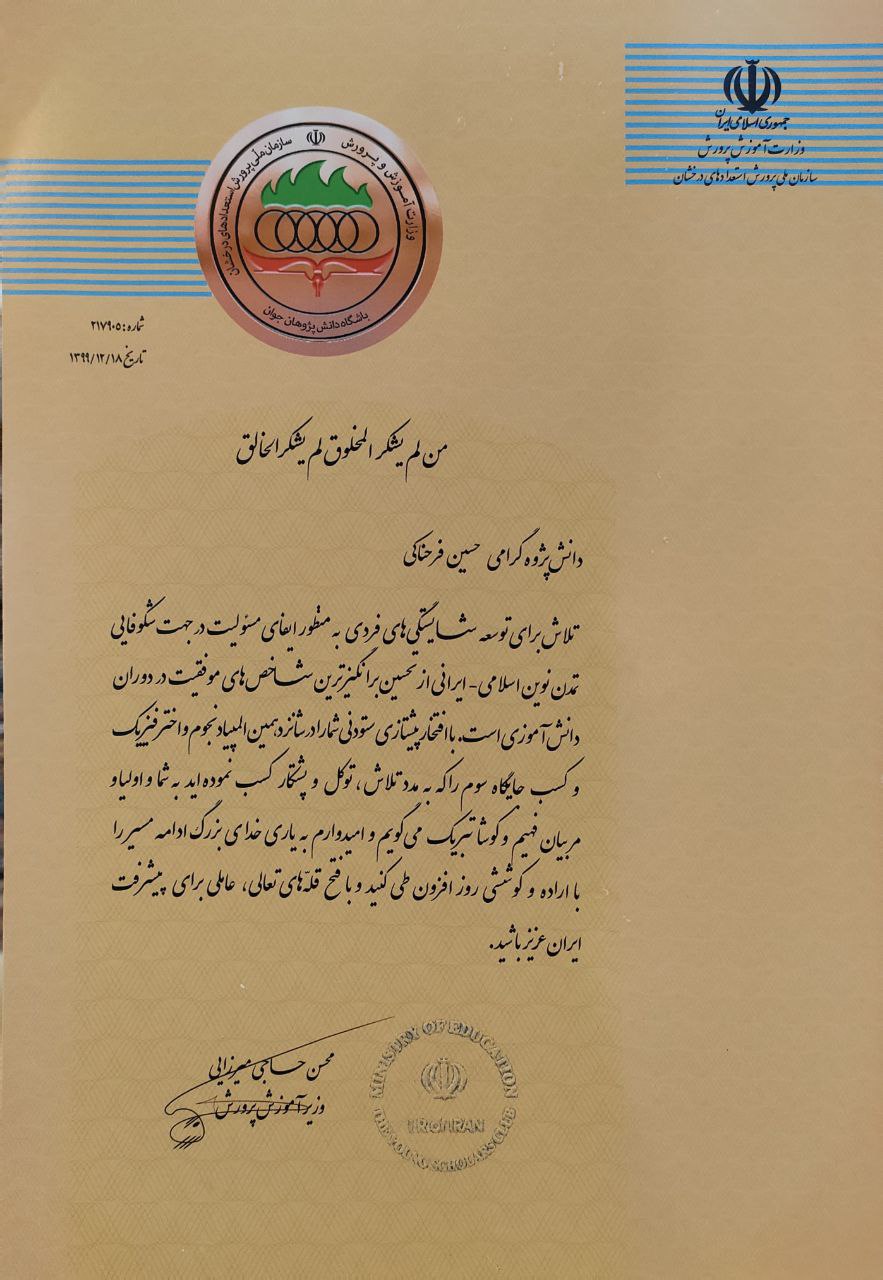 جمهوری اسلامی ایران
وزارت آموزش پرورش
سازمان ملی پرورش استعدادهای درخشان
وزارت آموزش و پرورش
سازمان ملی پرورش استعدادهای درخشان
باشگاه دانش پژوهان جوان
شماره: ۲۱۷۹۰۵
تاریخ ۱۳۹۹/۱۲/۱۸
من لم یشکر المخلوق لم یشکر الخالق
دانش پژوه گرامی حسین فرحناکی
تلاش برای توسعه شایستگی‌های فردی به منظور ایفای مسئولیت در جهت شکوفایی
تمدن نوین اسلامی- ایرانی از تحسین برانگیزترین شاخص‌های موفقیت در دوران
دانش آموزی است. با افتخار پیشتازی ستودنی شما را در شانزدهمین المپیاد نجوم و اختر فیزیک
و کسب جایگاه سوم را که به مدد تلاش، توکل و پشتکار کسب نموده اید به شما و اولیا و
مربیان فهیم و کوشا تبریک می گویم و امیدوارم به یاری خدای بزرگ ادامه مسیر را
با اراده و کوششی روز افزون طی کنید و با فتح قله‌های تعالی، عاملی برای پیشرفت
ایران عزیز باشید.
محسن حاجی میرزایی
وزیر آموزش پرورش
MINISTRY OF EDUCATION
I.R. OF IRAN
THE YOUNG SCHOLARS CLUB